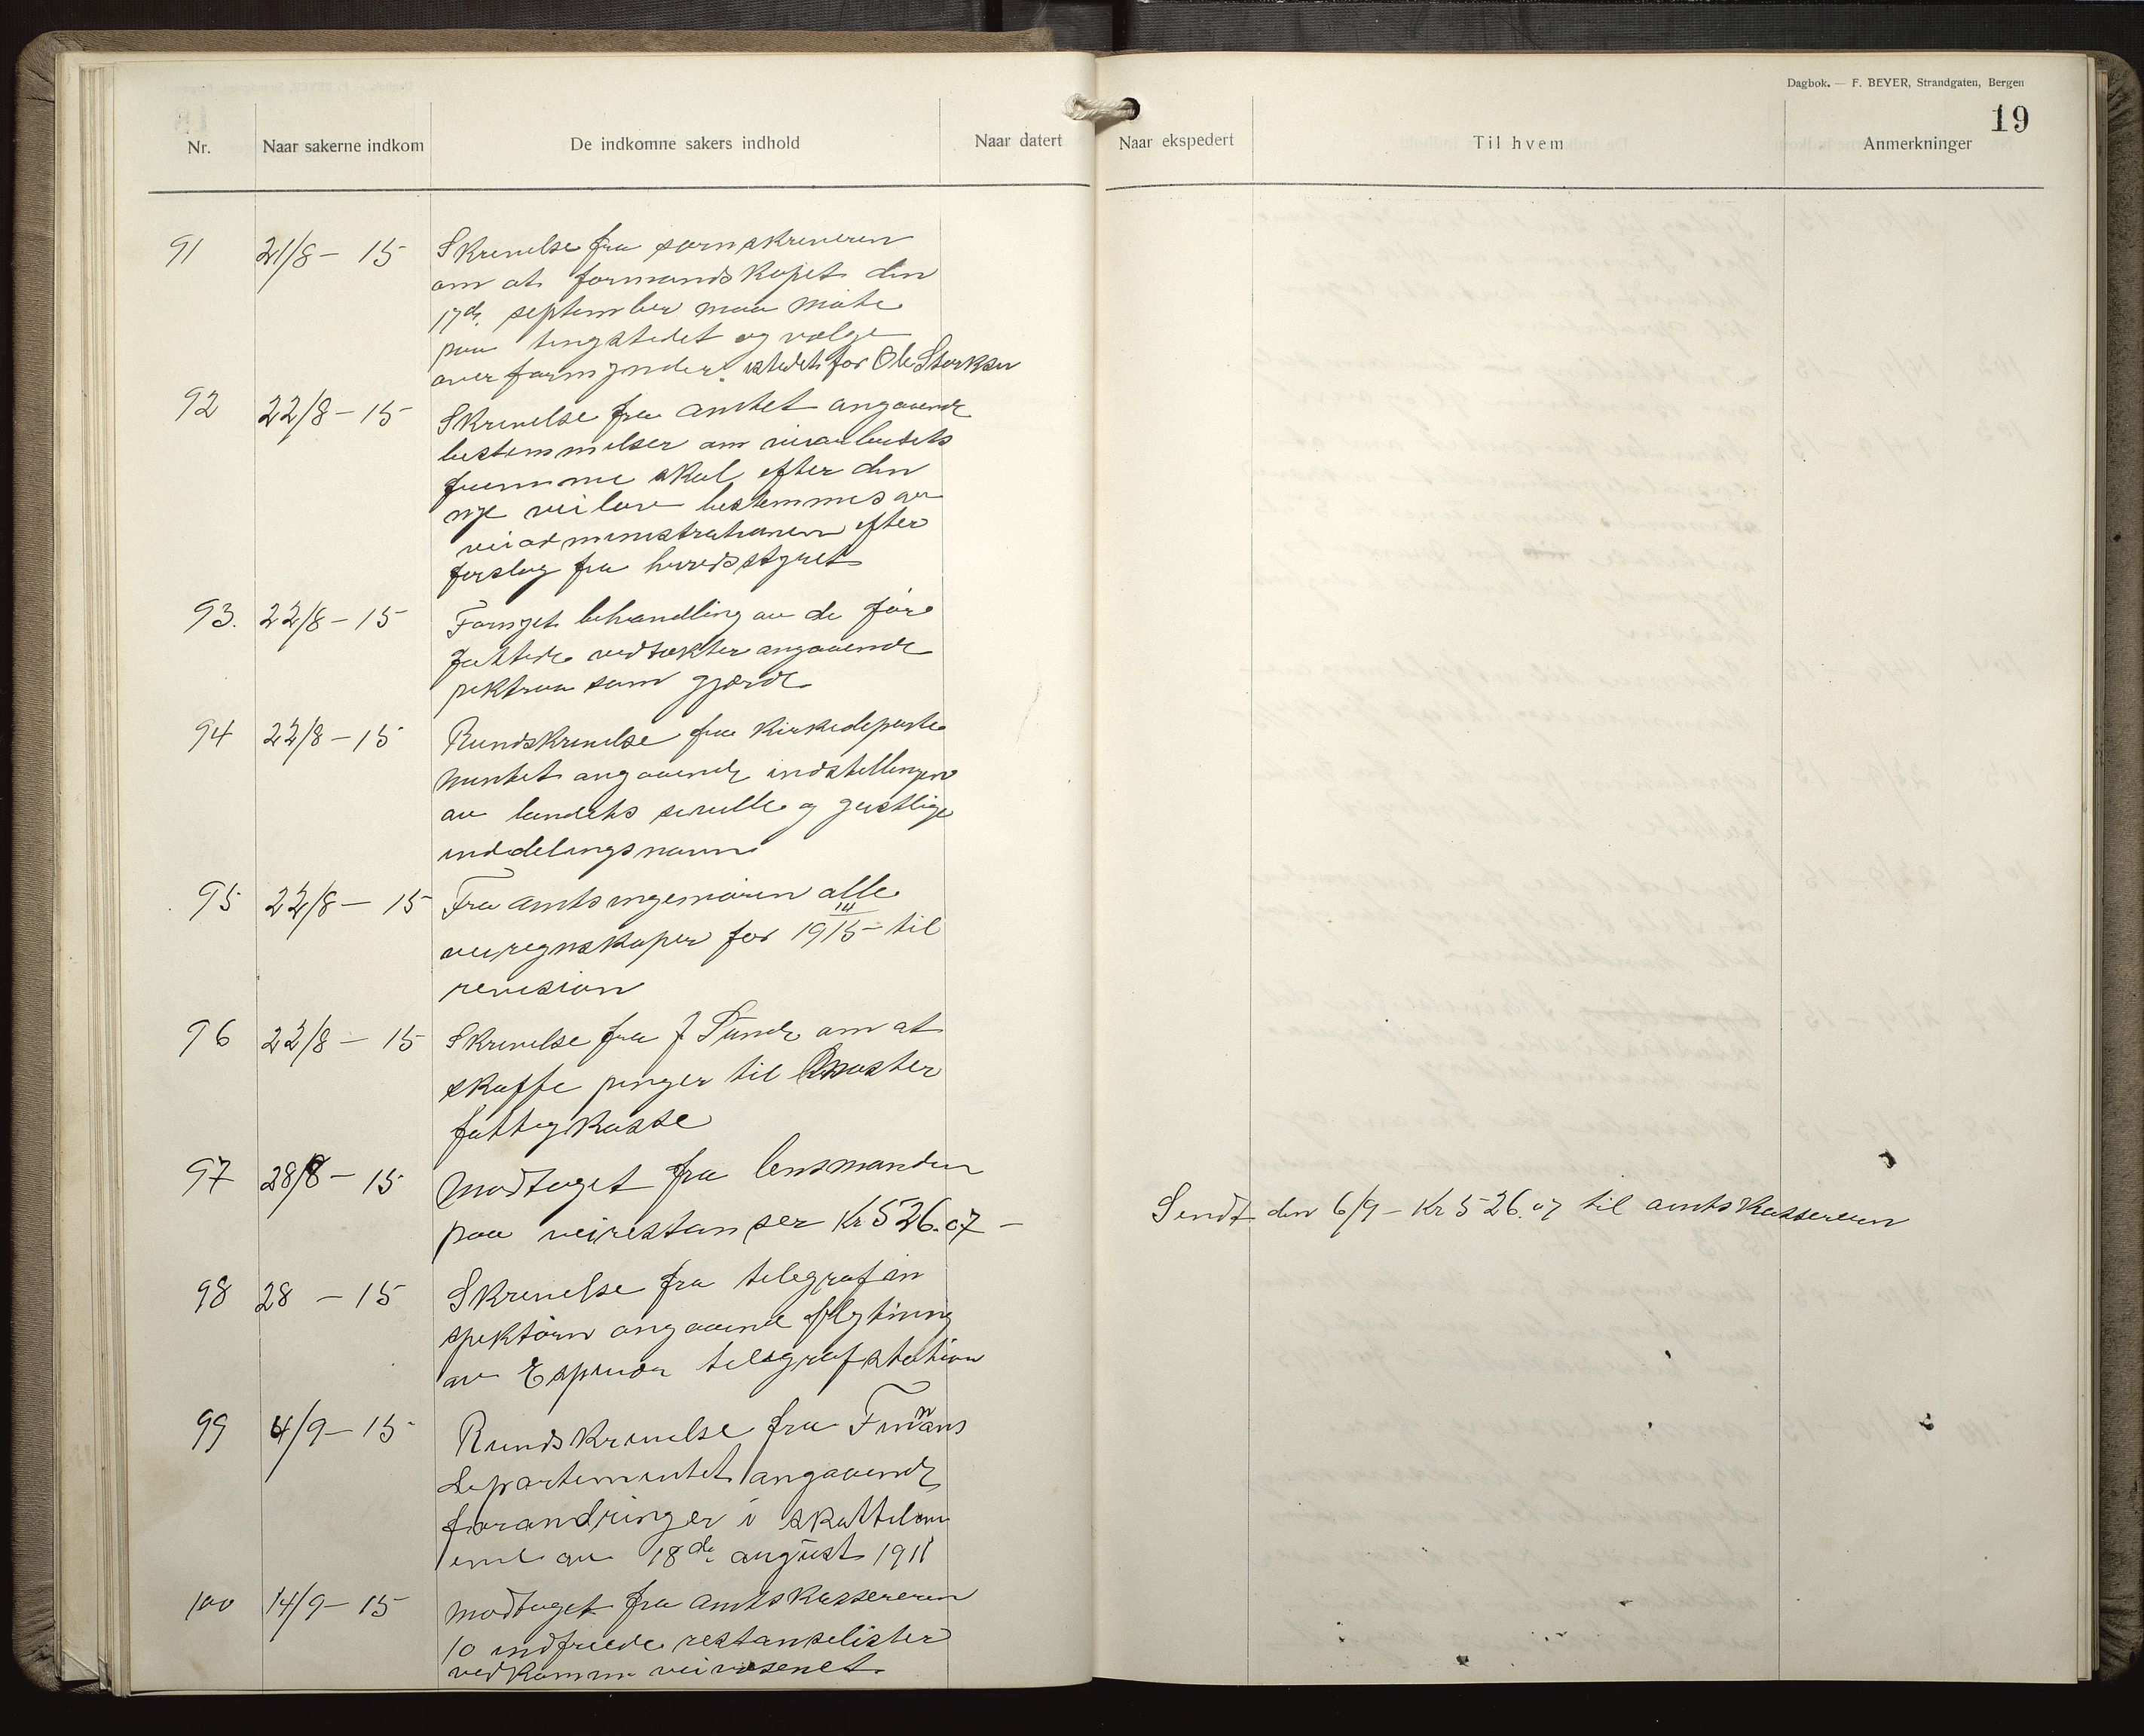 Dagbok. — F. BEYER, Strandgaten, Bergen
19
Nr. Naar sakerne indkom De indkomne sakers indhold Naar datert Naar ekspedert Til hvem Anmerkninger
91 21/8 - 15 Skrivelse fra sorenskriveren
om at formandskapet den
17de september maa møte
paa tingstedet og vælge
overformynder istedet for Ole Storksen
92 22/8 - 15 Skrivelse fra amtet angaaende
bestemmelser om veiarbeidets
fremme skal efter den
nye veilov bestemmes av
veiadministrationen efter
forslag fra herredsstyret
93. 22/8 - 15 Fornyet behandling av de før
fattede vedtækter angaaende
pektraa som gjærde
94 22/8 - 15 Rundskrivelse fra Kirkedeparte
mentet angaaende indstillingen
av landets siville og geistlige
inddelingsnavne
95 22/8 - 15 Fra amtsingeniøren alle
veiregnskaper for 19 14/15 - til
revision
96 22/8 - 15 Skrivelse fra J Sunde om at
skaffe penger til
fattigkasse
97 28/8 - 15 Modtaget fra lensmanden
paa veirestanser Kr 526.07 - Sendt den 6/9 - Kr 526.07 til amtskassereren
98 28 - 15 Skrivelse fra telegrafin
spektørn angaaende flytning
av Espevær telegrafstation
99 4/9 - 15 Rundskrivelse fra Finans
departementet angaaende
forandringer i skattelov
ene av 18de august 1911
100 14/9 - 15 Modtaget fra amtskassereren
10 indfriede restanselister
vedkomm veivæsenet.